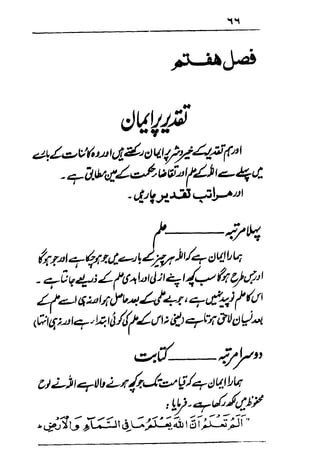 ۶۶
فصل هفتم
تقدیر پر ایمان
اور ہم تقدیر کے خیر و شر پر ایمان رکھتے ہیں اور وہ کائنات کے بارے
میں پہلے سے اللہ کے علم اور تقاضائے حکمت کے عین مطابق ہے ۔
اور مراتب تقدیر چار ہیں ۔
پہلا مرتبہ ——— علم
ہمارا ایمان ہے کہ اللہ ہر چیز کے بارے میں جو ہو چکا ہے اور جو ہو گا
اور جس طرح ہو گا سب کچھ اپنے ازلی اور ابدی علم کے ذریعے جانتا ہے ۔
اس کا علم نو پید نہیں ہے ، جو بے علمی کے بعد حاصل ہو اور نہ ہی اسے علم کے
بعد نسیان لاحق ہوتا ہے (یعنی نہ اس کے علم کی کوئی ابتدا ہے اور نہ ہی انتہا)
دوسرا مرتبہ ——— کتابت
ہمارا ایمان ہے کہ قیامت تک جو کچھ ہونے والا ہے اللہ نے لوح
محفوظ میں لکھ رکھا ہے ۔ فرمایا :
"اَلَمْ تَعْلَمْ اَنَّ اللّٰهَ يَعْلَمُ مَا فِى السَّمَآءِ وَالْاَرْضِ ؕ